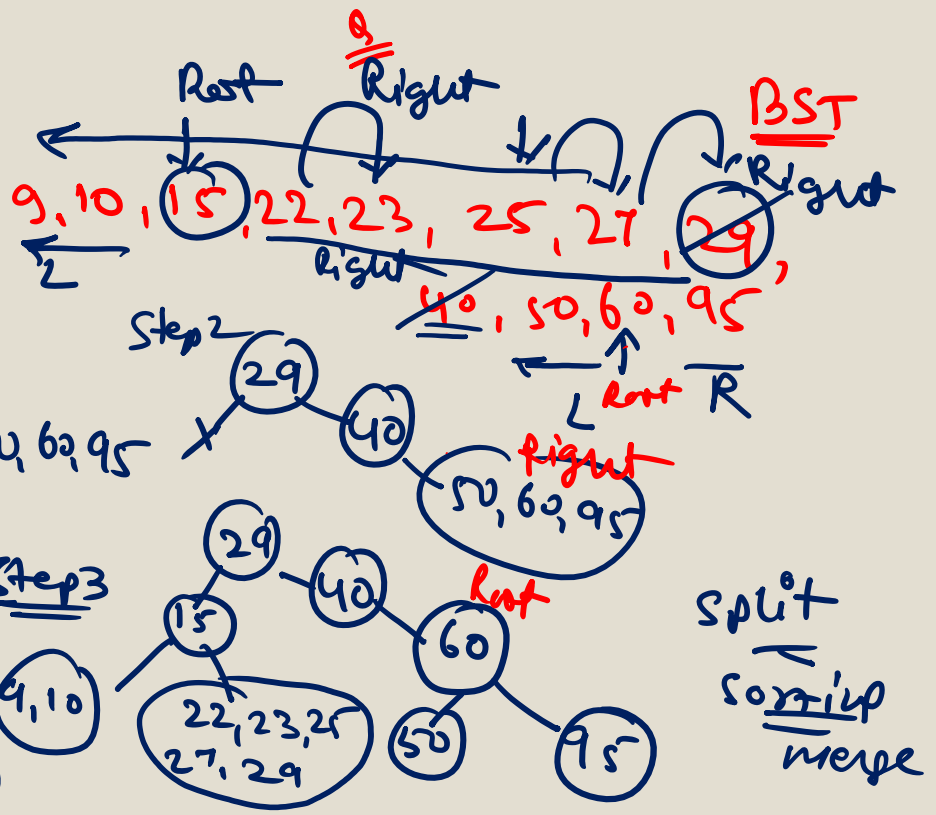 Q
Root Right BST
Right
9, 10, 15, 22, 23, 25, 27, 29,
L Right
40, 50, 60, 95
L Root R
Step2
29
40
0, 60, 95
Right
50, 60, 95
Step3
29
40
Root
15
60
9, 10
22, 23, 25
27, 29
50
95
split
sorting
merge